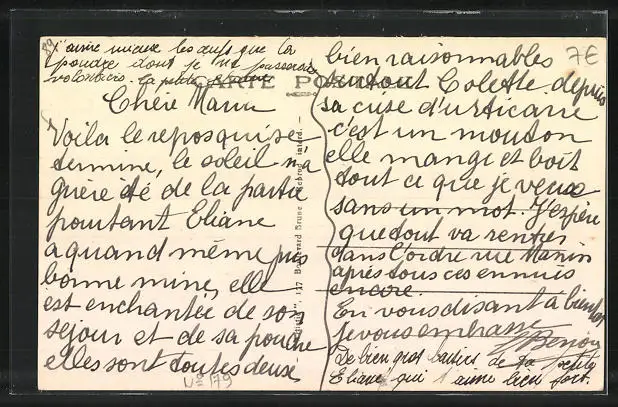 j'aime mieux les œufs que la
poudre dont je me passerais
volontiers. La petite
CARTE POSTALE
Chère Mamn
Voila le repos qui se
termine, le soleil n'a
guère été de la partie
pourtant Eliane
a quand même pris
bonne mine, elle
est enchantée de son
séjour et de sa poudre
elles sont toutes deux
bien raisonnables
surtout Colette depuis
sa crise d'urticaire
c'est un mouton
elle mange et boit
tout ce que je veux
sans un mot. J'espère
que tout va rentrer
dans l'ordre rue Manin
après tous ces ennuis
encore.
En vous disant à bientôt
Je vous embrasse
De bien gros baisers de ta petite
Eliane qui t'aime bien fort.
7€
127 Boulevard Brune
Nº 179